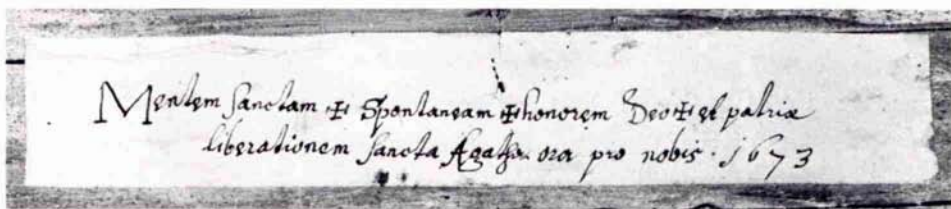 Mentem sanctam ✠ Spontaneam ✠ honorem Deo ✠ et patriæ
liberationem sancta Agatha ora pro nobis · 1673